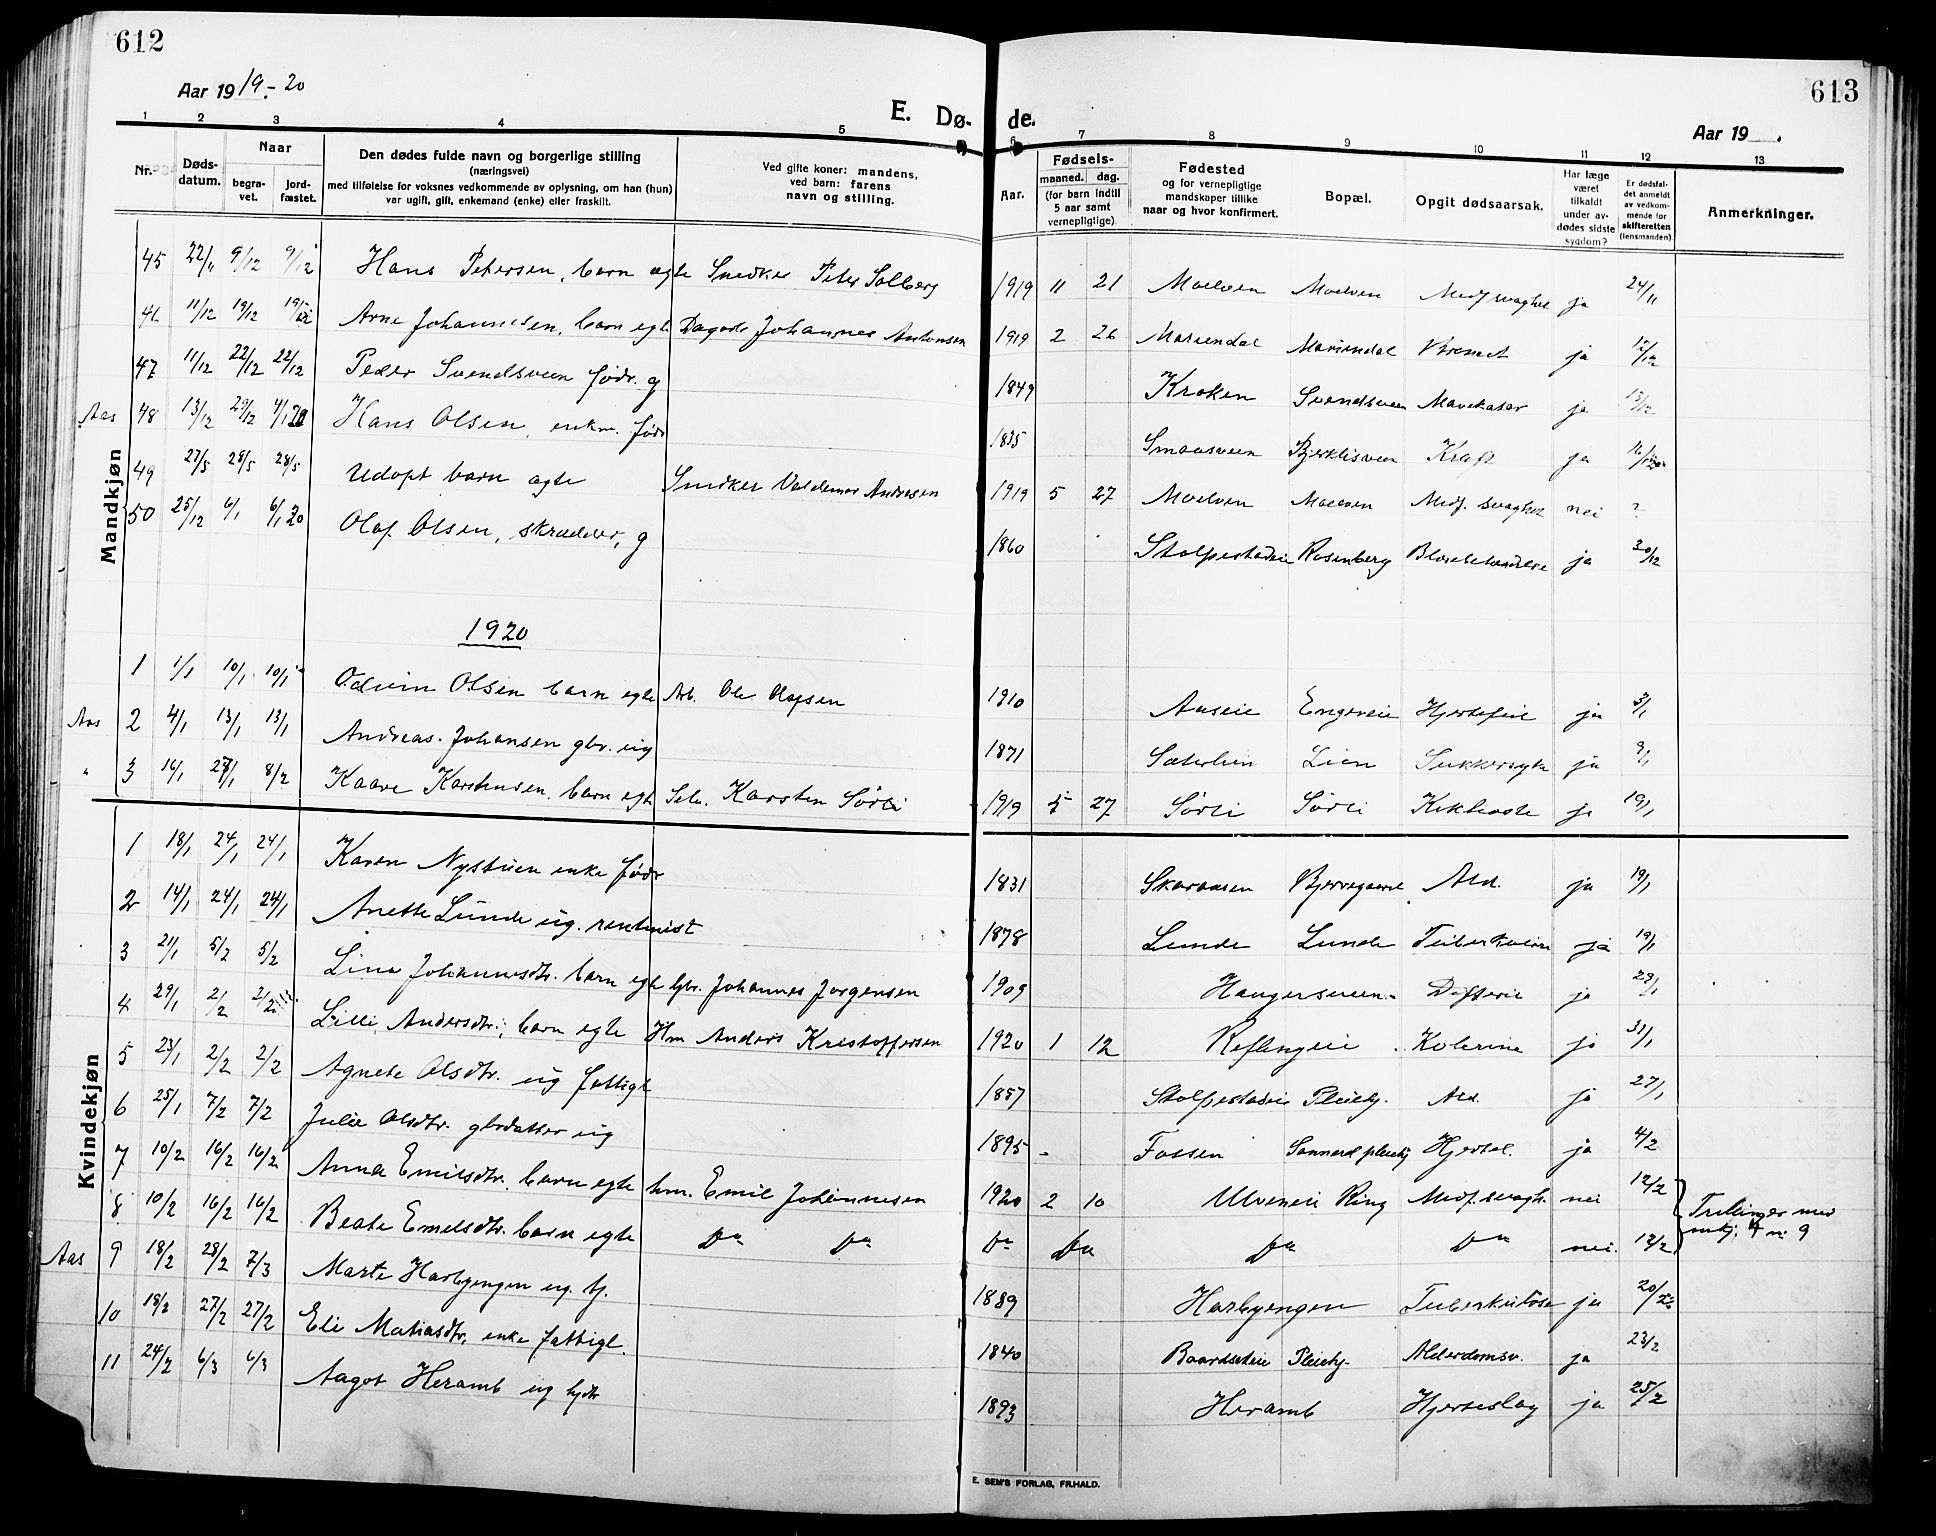 612
613
Aar 1919.-20
E. Dø- de.
Aar 19
1 2 3 4 5 6 7 8 9 10 11 12 13
Nr.
Døds-datum.
Naar
begra-vet.
jord-fæstet.
Den dødes fulde navn og borgerlige stilling
(næringsvei)
med tilføielse for voksnes vedkommende av oplysning, om han (hun)
var ugift, gift, enkemand (enke) eller fraskilt.
Ved gifte koner: mandens,
ved barn: farens
navn og stilling.
Aar.
Fødsels-
maaned. dag.
(for barn indtil
5 aar samt
vernepligtige)
Fødested
og for vernepligtige
mandskaper tillike
naar og hvor konfirmert.
Bopæl.
Opgit dødsaarsak.
Har læge
været
tilkaldt
under av-
dødes sidste
sygdom?
Er dødsfal-
det anmeldt
av vedkom-
mende for
skifteretten
(lensmanden)
Anmerkninger.
Mandkjøn
45 22/11 9/12 9/12 Hans Petersen, barn egte Snedker Peter Solberg 1919 11 21 Moelven Moelven Medf svaghet ja 24/11
46 11/12 19/12 19/12 Arne Johannesen, barn egte Dagarb Johannes Antonsen 1919 2 26 Mariendal Mariendal ja 12/12
47 11/12 22/12 22/12 Peder Svendsveen fødr. g 1849 Kroken Svendsveen Mavekatar ja 13/12
Aas 48 13/12 29/12 4/1 20 Hans Olsen, enkm. fødr 1835 Smaasveen Bjerklisveen Kræft ja
49 27/5 28/5 28/5 Udøpt barn egte Snedker Valdemar Andresen 1919 5 27 Moelven Moelven Medf. svaghet nei ?
50 25/12 6/1 6/1 20 Olaf Olsen, skrædder, g 1860 Stolpestadeie Rosenberg ja 30/12
1920
1 1/1 10/1 10/1 Odvin Olsen barn egte Arb. Ole Olafsen 1910 Aaseie Engereie Hjertefeil ja 3/1
Aas 2 4/1 13/1 13/1 Andreas Johansen gbr. ug 1871 Sæterlien Lien Sukkersyke ja 9/1
" 3 16/1 27/1 8/2 Kaare Karstensen, barn egte Selv. Karsten Sørli 1919 5 27 Sørli Sørli Kikhoste ja 19/1
Kvindekjøn
1 18/1 24/1 24/1 Karen Nystuen enke fødr 1831 Skaraasen Bjerregaard Ald. ja 19/1
2 14/1 24/1 24/1 Anette Lunde ug. rentenist 1878 Lunde Lunde Tuberkulose ja 19/1
3 21/1 5/2 5/2 Lina Johannesdtr. barn egte Gbr. Johannes Jørgensen 1909 Haugersveen Difteri ja 28/1
4 29/1 2/2 2/2 Lilli Andersdtr. barn egte Hm Anders Kristoffersen 1920 1 12 Reflingeie Kolerine ja 31/1
5 23/1 2/2 2/2 Agnete Olsdtr. ug fattigl 1857 Stolpestadeie Pleiehj. Ald. ja 27/1
6 25/1 7/2 7/2 Julie Olsdtr. gbrdatter ug 1895 Fossen Sannerd pleiehj Hjertel. ja 4/2
7 10/2 16/2 16/2 Anna Emilsdtr. barn egte hm. Emil Johannesen 1920 2 10 Ulveneie Ring Medf. svagh. nei 12/2
8 10/2 16/2 16/2 Beate Emilsdtr. barn egte Do Do Do Do Do Do nei 12/2
Trillinger med
mkj. 4 n: 9
Aas 9 18/2 28/2 7/3 Marte Harbyengen ug. tj. 1889 Harbyengen Tuberkulose ja 20/2
10 18/2 27/2 27/2 Eli Matiasdtr. enke fattigl. 1840 Baardseteie Pleiehj. Alderdomsv. ja 23/2
11 24/2 6/3 6/3 Aagot Heramb ug hjdtr 1893 Heramb Hjerteslag ja 25/2
E. SEM'S FORLAG, FR.HALD.